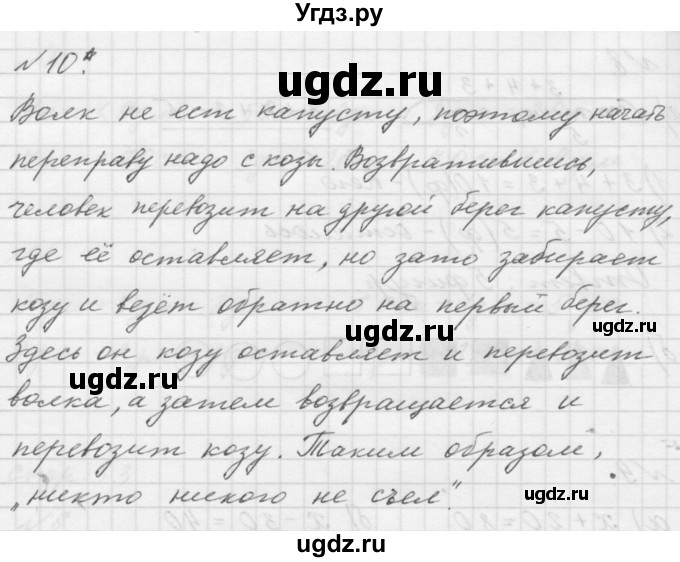 Угдз.ру
№10*.
ugdz.ru
Волк не ест капусту, поэтому начать
переправу надо с козы. Возвратившись,
ugdz.ru
человек перевозит на другой берег капусту,
где её оставляет, но зато забирает
козу и везёт обратно на первый берег.
ugdz.ru
Здесь он козу оставляет и перевозит
ugdz.ru
волка, а затем возвращается и
перевозит козу. Таким образом,
„никто никого не съел".
ugdz.ru
ugdz.ru